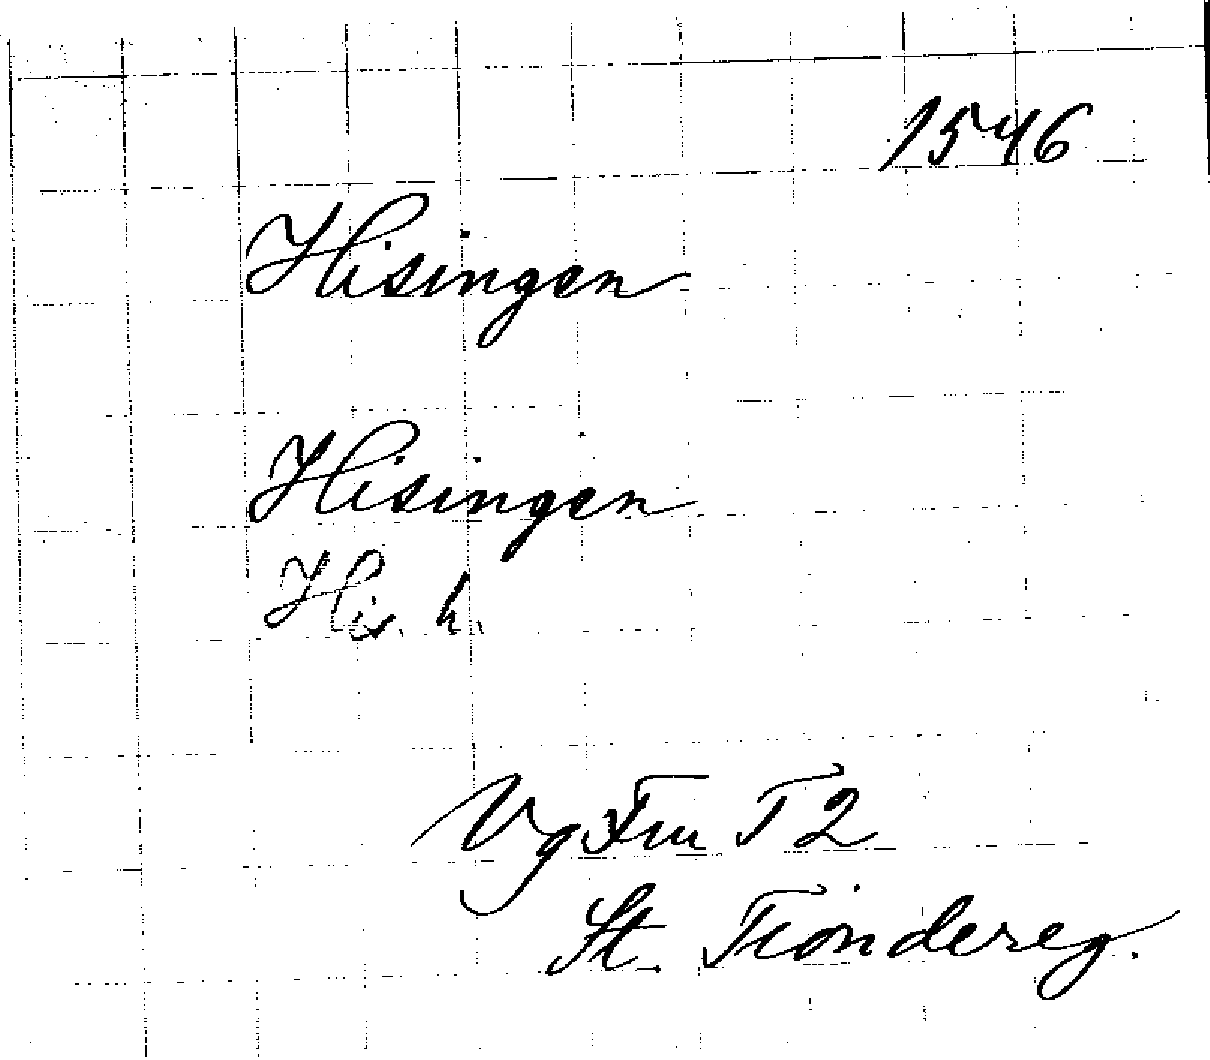 1546
Hisingen
Hisingen
His. h.
Vg Fru T 2
St. Tiondereg.